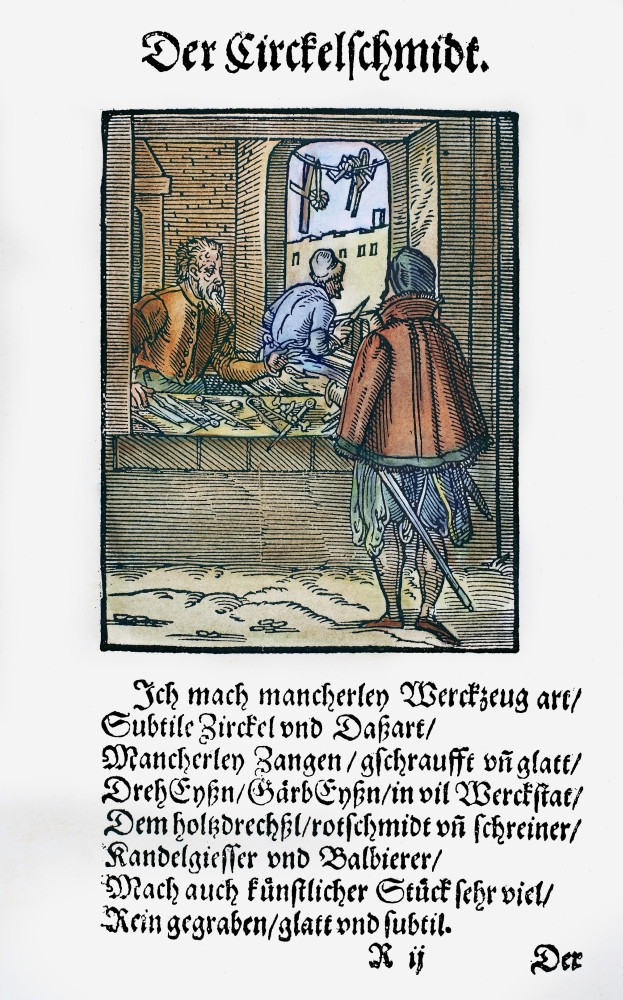 Der Circkelschmidt.
Ich mach mancherley Werckzeug art/
Subtile Zirckel vnd Daßart/
Mancherley Zangen / gschraufft vñ glatt/
DrehEyßn/GärbEyßn/in vil Werckstat/
Dem holtzdrechßl/rotschmidt vñ schreiner/
Kandelgiesser vnd Balbierer/
Mach auch künstlicher Stück sehr viel/
Rein gegraben/glatt vnd subtil.
R ij Der